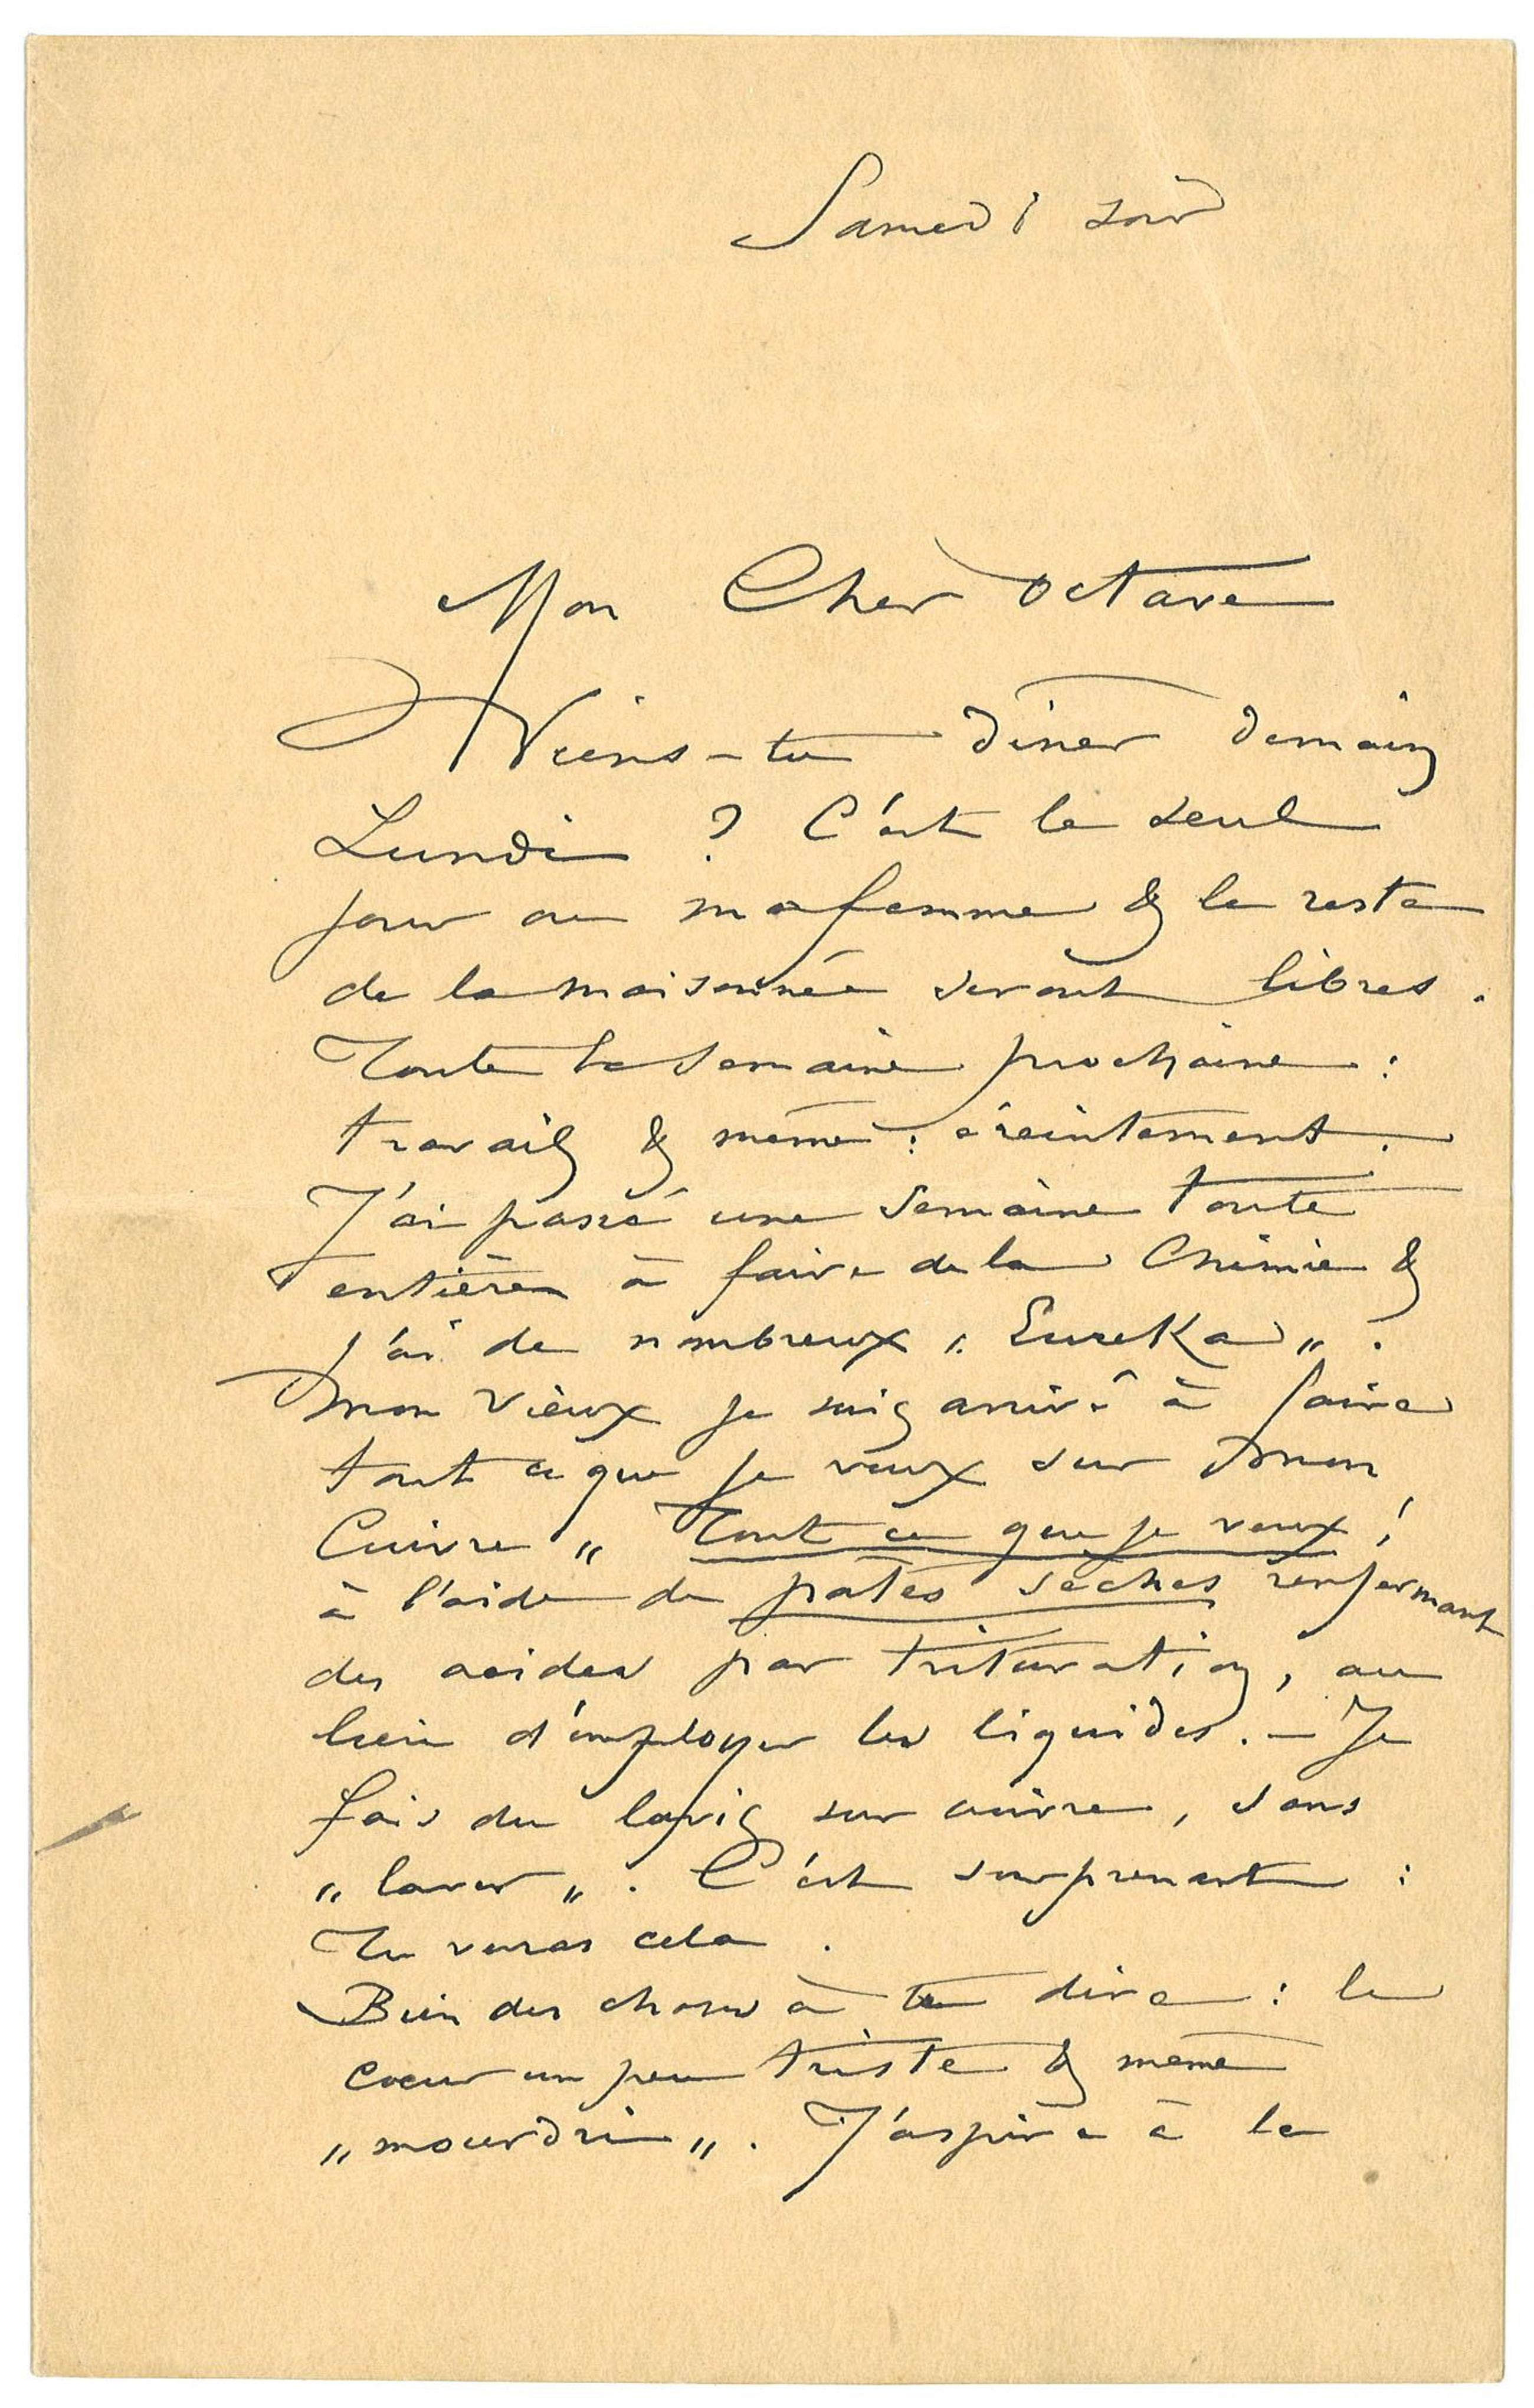 Samedi soir
Mon Cher Octave
Viens-tu dîner demain
Lundi ? C'est le seul
jour où ma femme & le reste
de la maisonnée seront libres.
Toute la semaine prochaine :
travail & même : éreintement.
J'ai passé une semaine toute
entière à faire de la Chimie &
j'ai de nombreux „ Eureka „ .
Mon vieux je suis arrivé à faire
tout ce que je veux sur mon
Cuivre „ Tout ce que je veux !
à l'aide de pâtes sèches renfermant
des acides par trituration, au
lieu d'employer les liquides. — Je
fais du lavis sur cuivre, sans
„ laver „ . C'est surprenant :
Tu verras cela .
Bien des choses à te dire : le
coeur un peu triste & même
„ mourdri „ . J'aspire à le